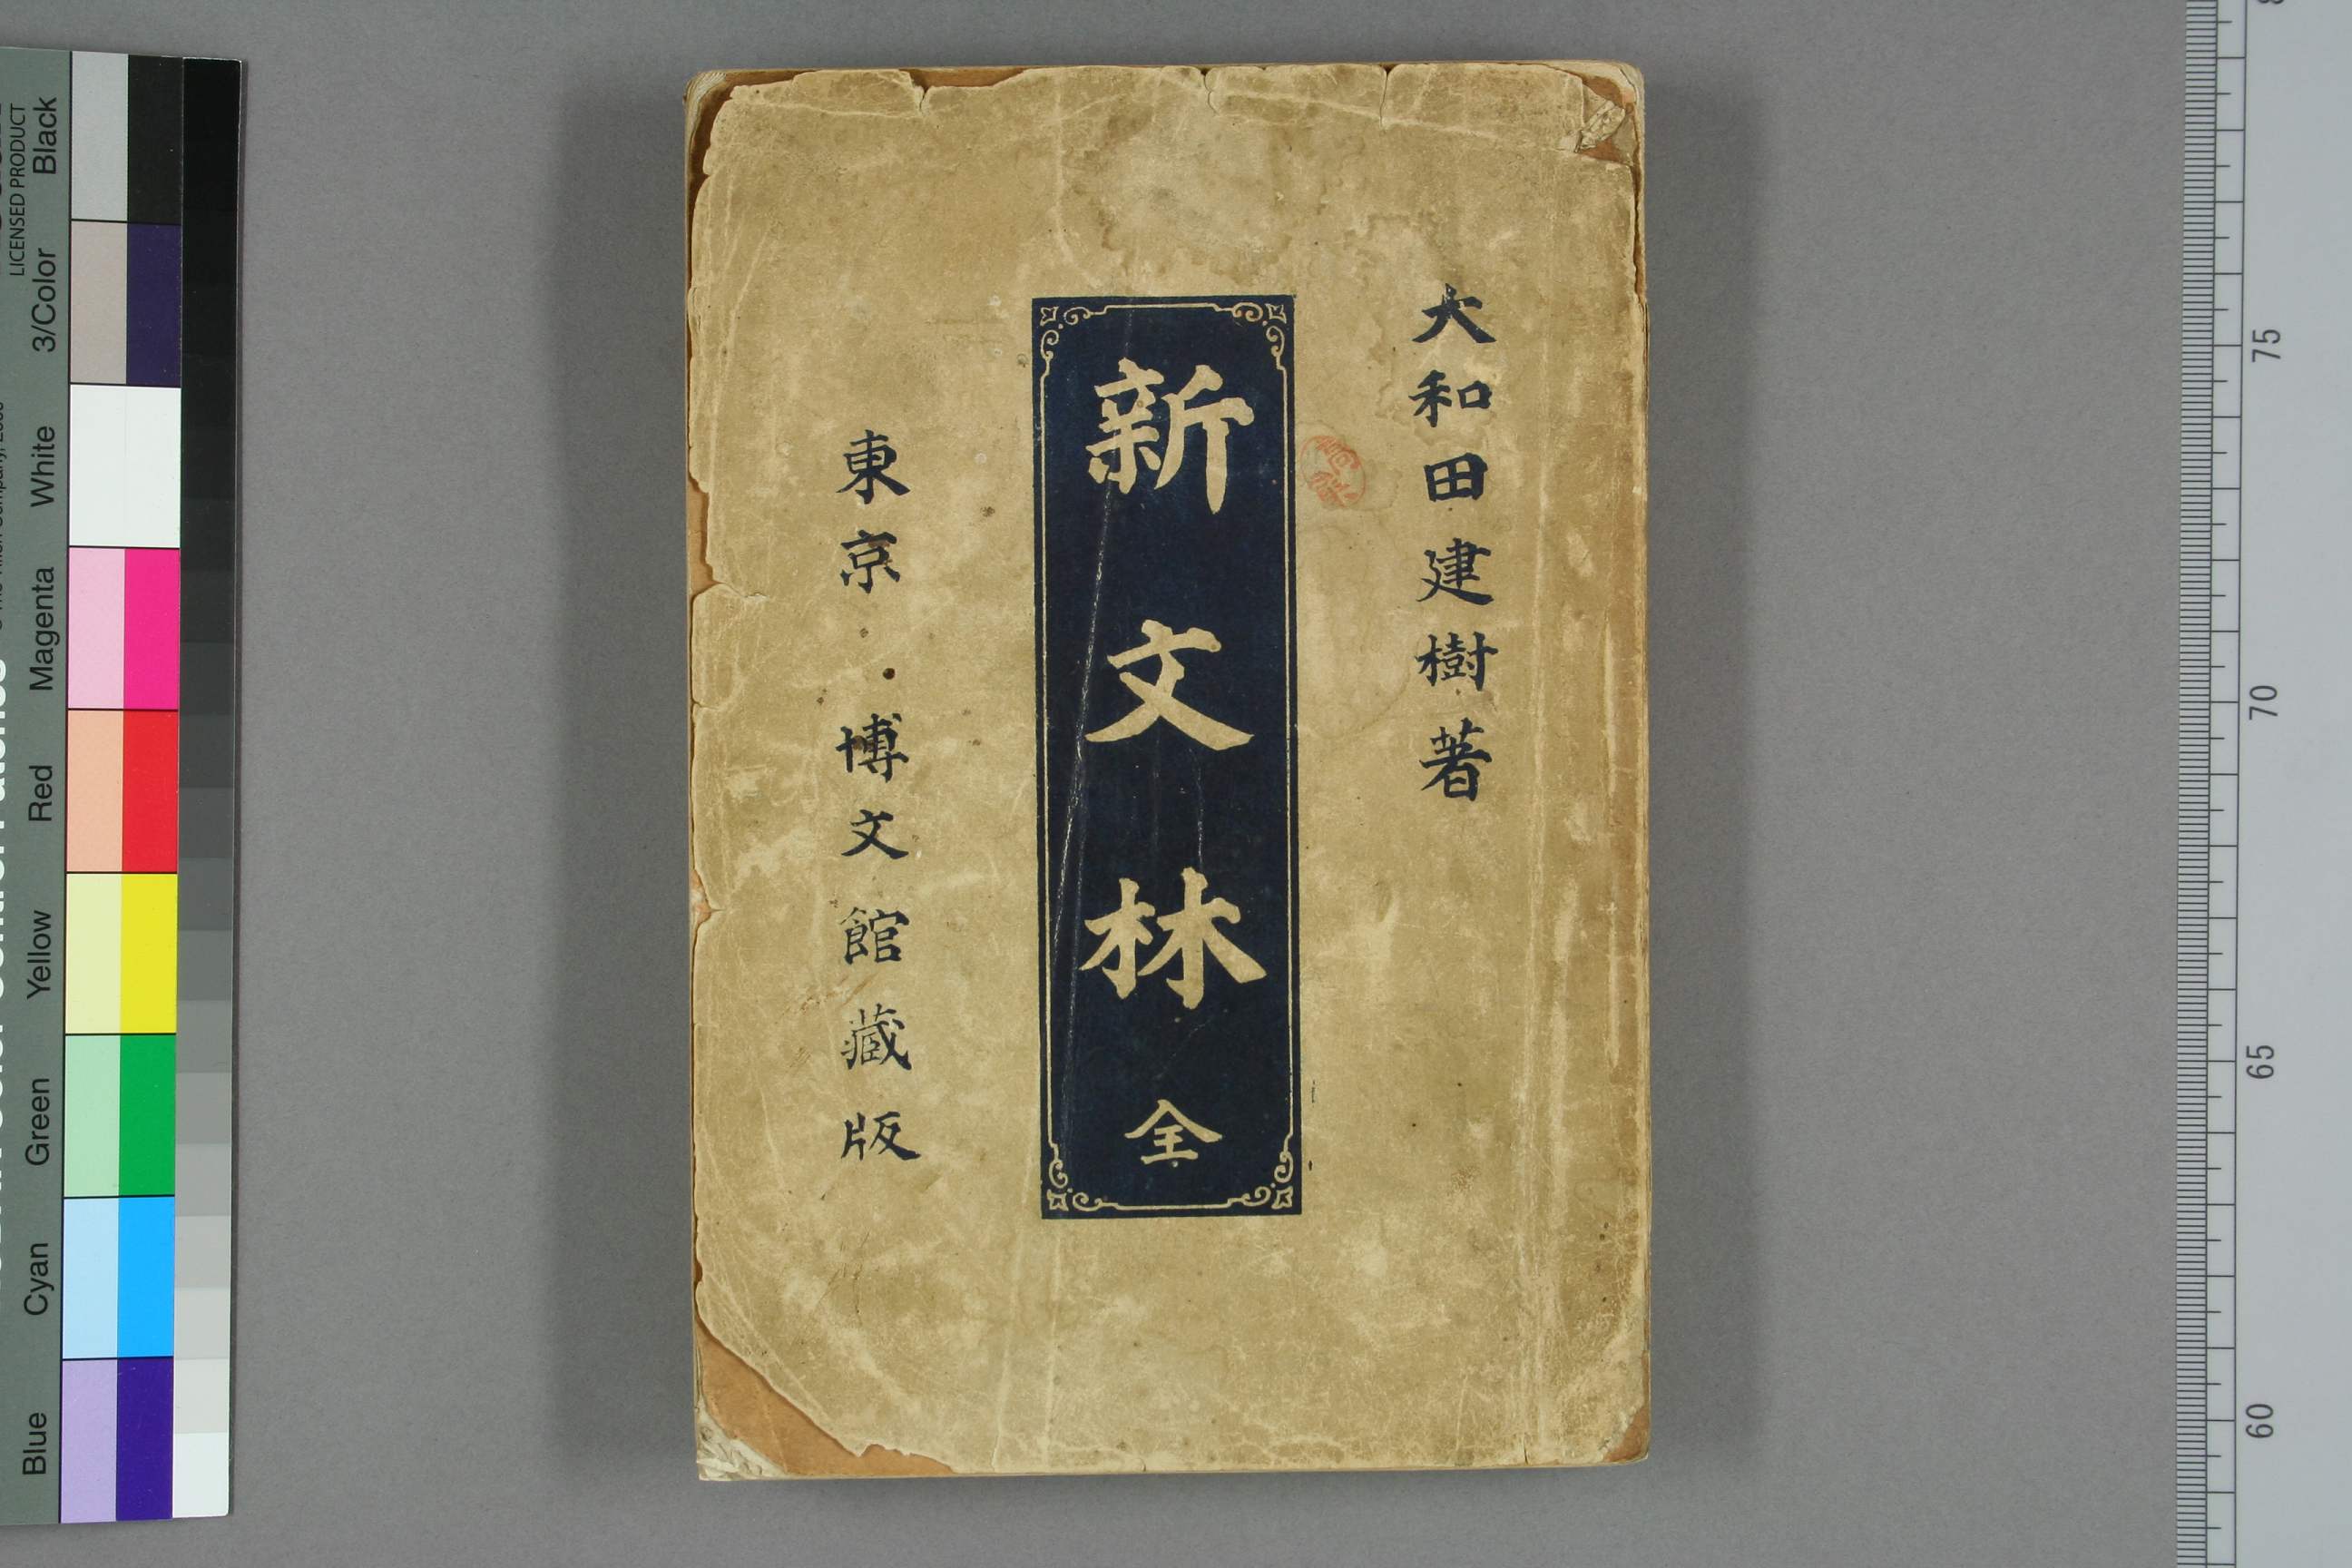 大和田建樹著
新文林 全
東京 博文館藏版
LICENSED PRODUCT
Black
3/Color
White
Magenta
Red
Yellow
Green
Cyan
Blue
75
70
65
60